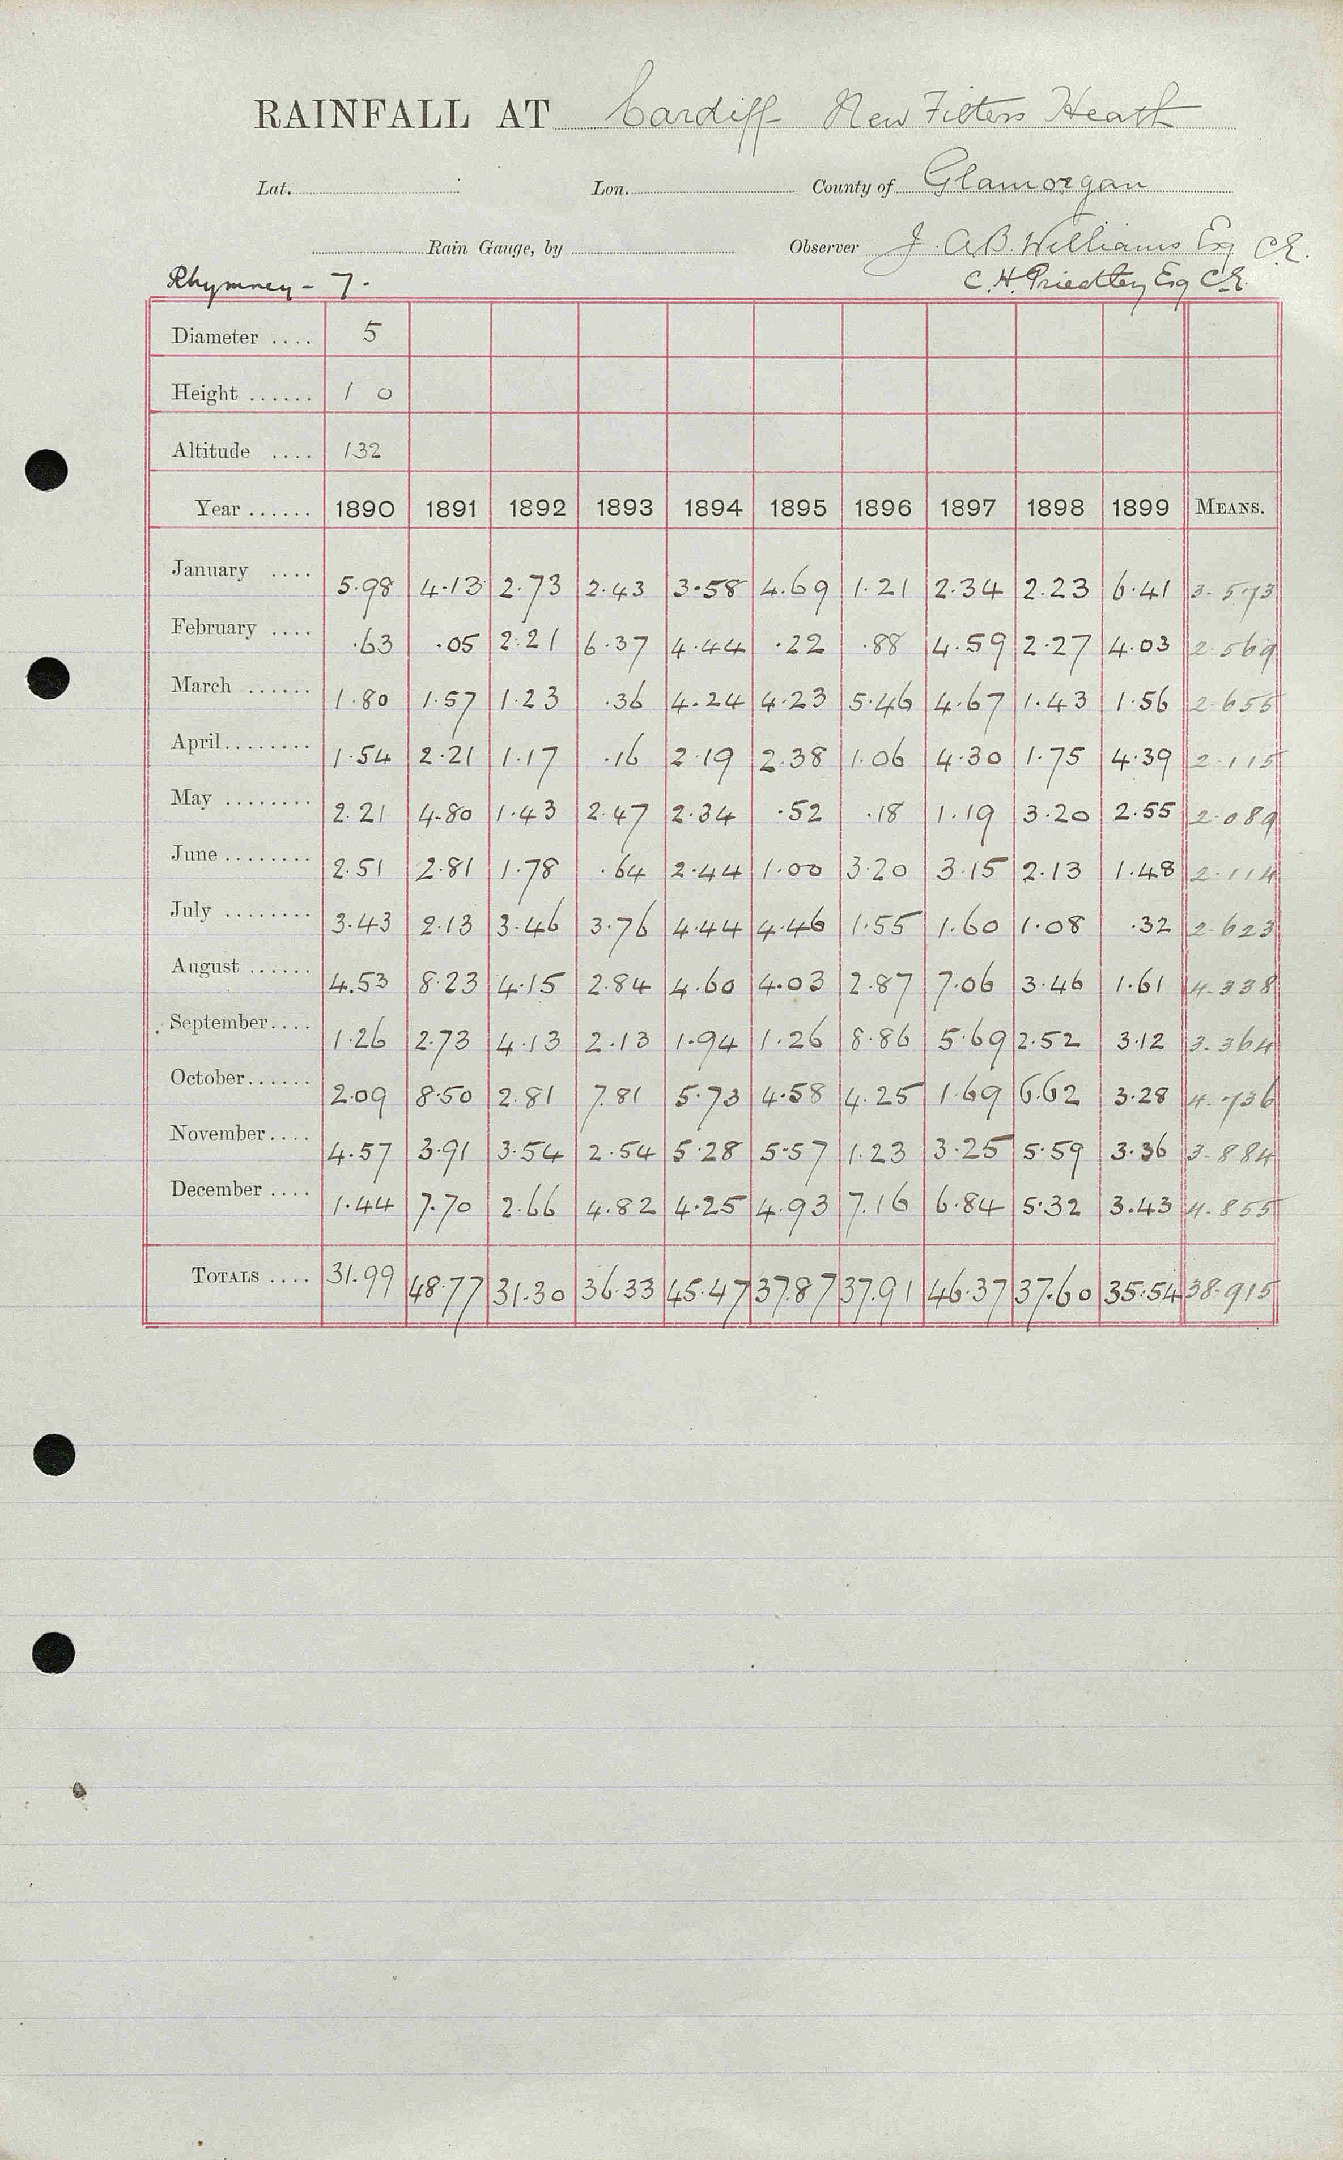 RAINFALL AT Cardiff New Filters Heath
Lat. Lon. County of Glamorgan
Rain Gauge, by Observer J. A.B. Williams Esq C.E.
Rhymney - 7. C. H. Priestley Esq C.E.
Diameter .... 5
Height ...... 1 0
Altitude .... 132
Year ...... 1890 1891 1892 1893 1894 1895 1896 1897 1898 1899 MEANS.
January .... 5.98 4.13 2.73 2.43 3.58 4.69 1.21 2.34 2.23 6.41 3.573
February .... .63 .05 2.21 6.37 4.44 .22 .88 4.59 2.27 4.03 2.569
March ...... 1.80 1.57 1.23 .36 4.24 4.23 5.46 4.67 1.43 1.56 2.655
April........ 1.54 2.21 1.17 .16 2.19 2.38 1.06 4.30 1.75 4.39 2.115
May ........ 2.21 4.80 1.43 2.47 2.34 .52 .18 1.19 3.20 2.55 2.089
June ........ 2.51 2.81 1.78 .64 2.44 1.00 3.20 3.15 2.13 1.48 2.114
July ........ 3.43 2.13 3.46 3.76 4.44 4.46 1.55 1.60 1.08 .32 2.623
August ...... 4.53 8.23 4.15 2.84 4.60 4.03 2.87 7.06 3.46 1.61 4.338
September.... 1.26 2.73 4.13 2.13 1.94 1.26 8.86 5.69 2.52 3.12 3.364
October...... 2.09 8.50 2.81 7.81 5.73 4.58 4.25 1.69 6.62 3.28 4.736
November.... 4.57 3.91 3.54 2.54 5.28 5.57 1.23 3.25 5.59 3.36 3.884
December .... 1.44 7.70 2.66 4.82 4.25 4.93 7.16 6.84 5.32 3.43 4.855
TOTALS .... 31.99 48.77 31.30 36.33 45.47 37.87 37.91 46.37 37.60 35.54 38.915